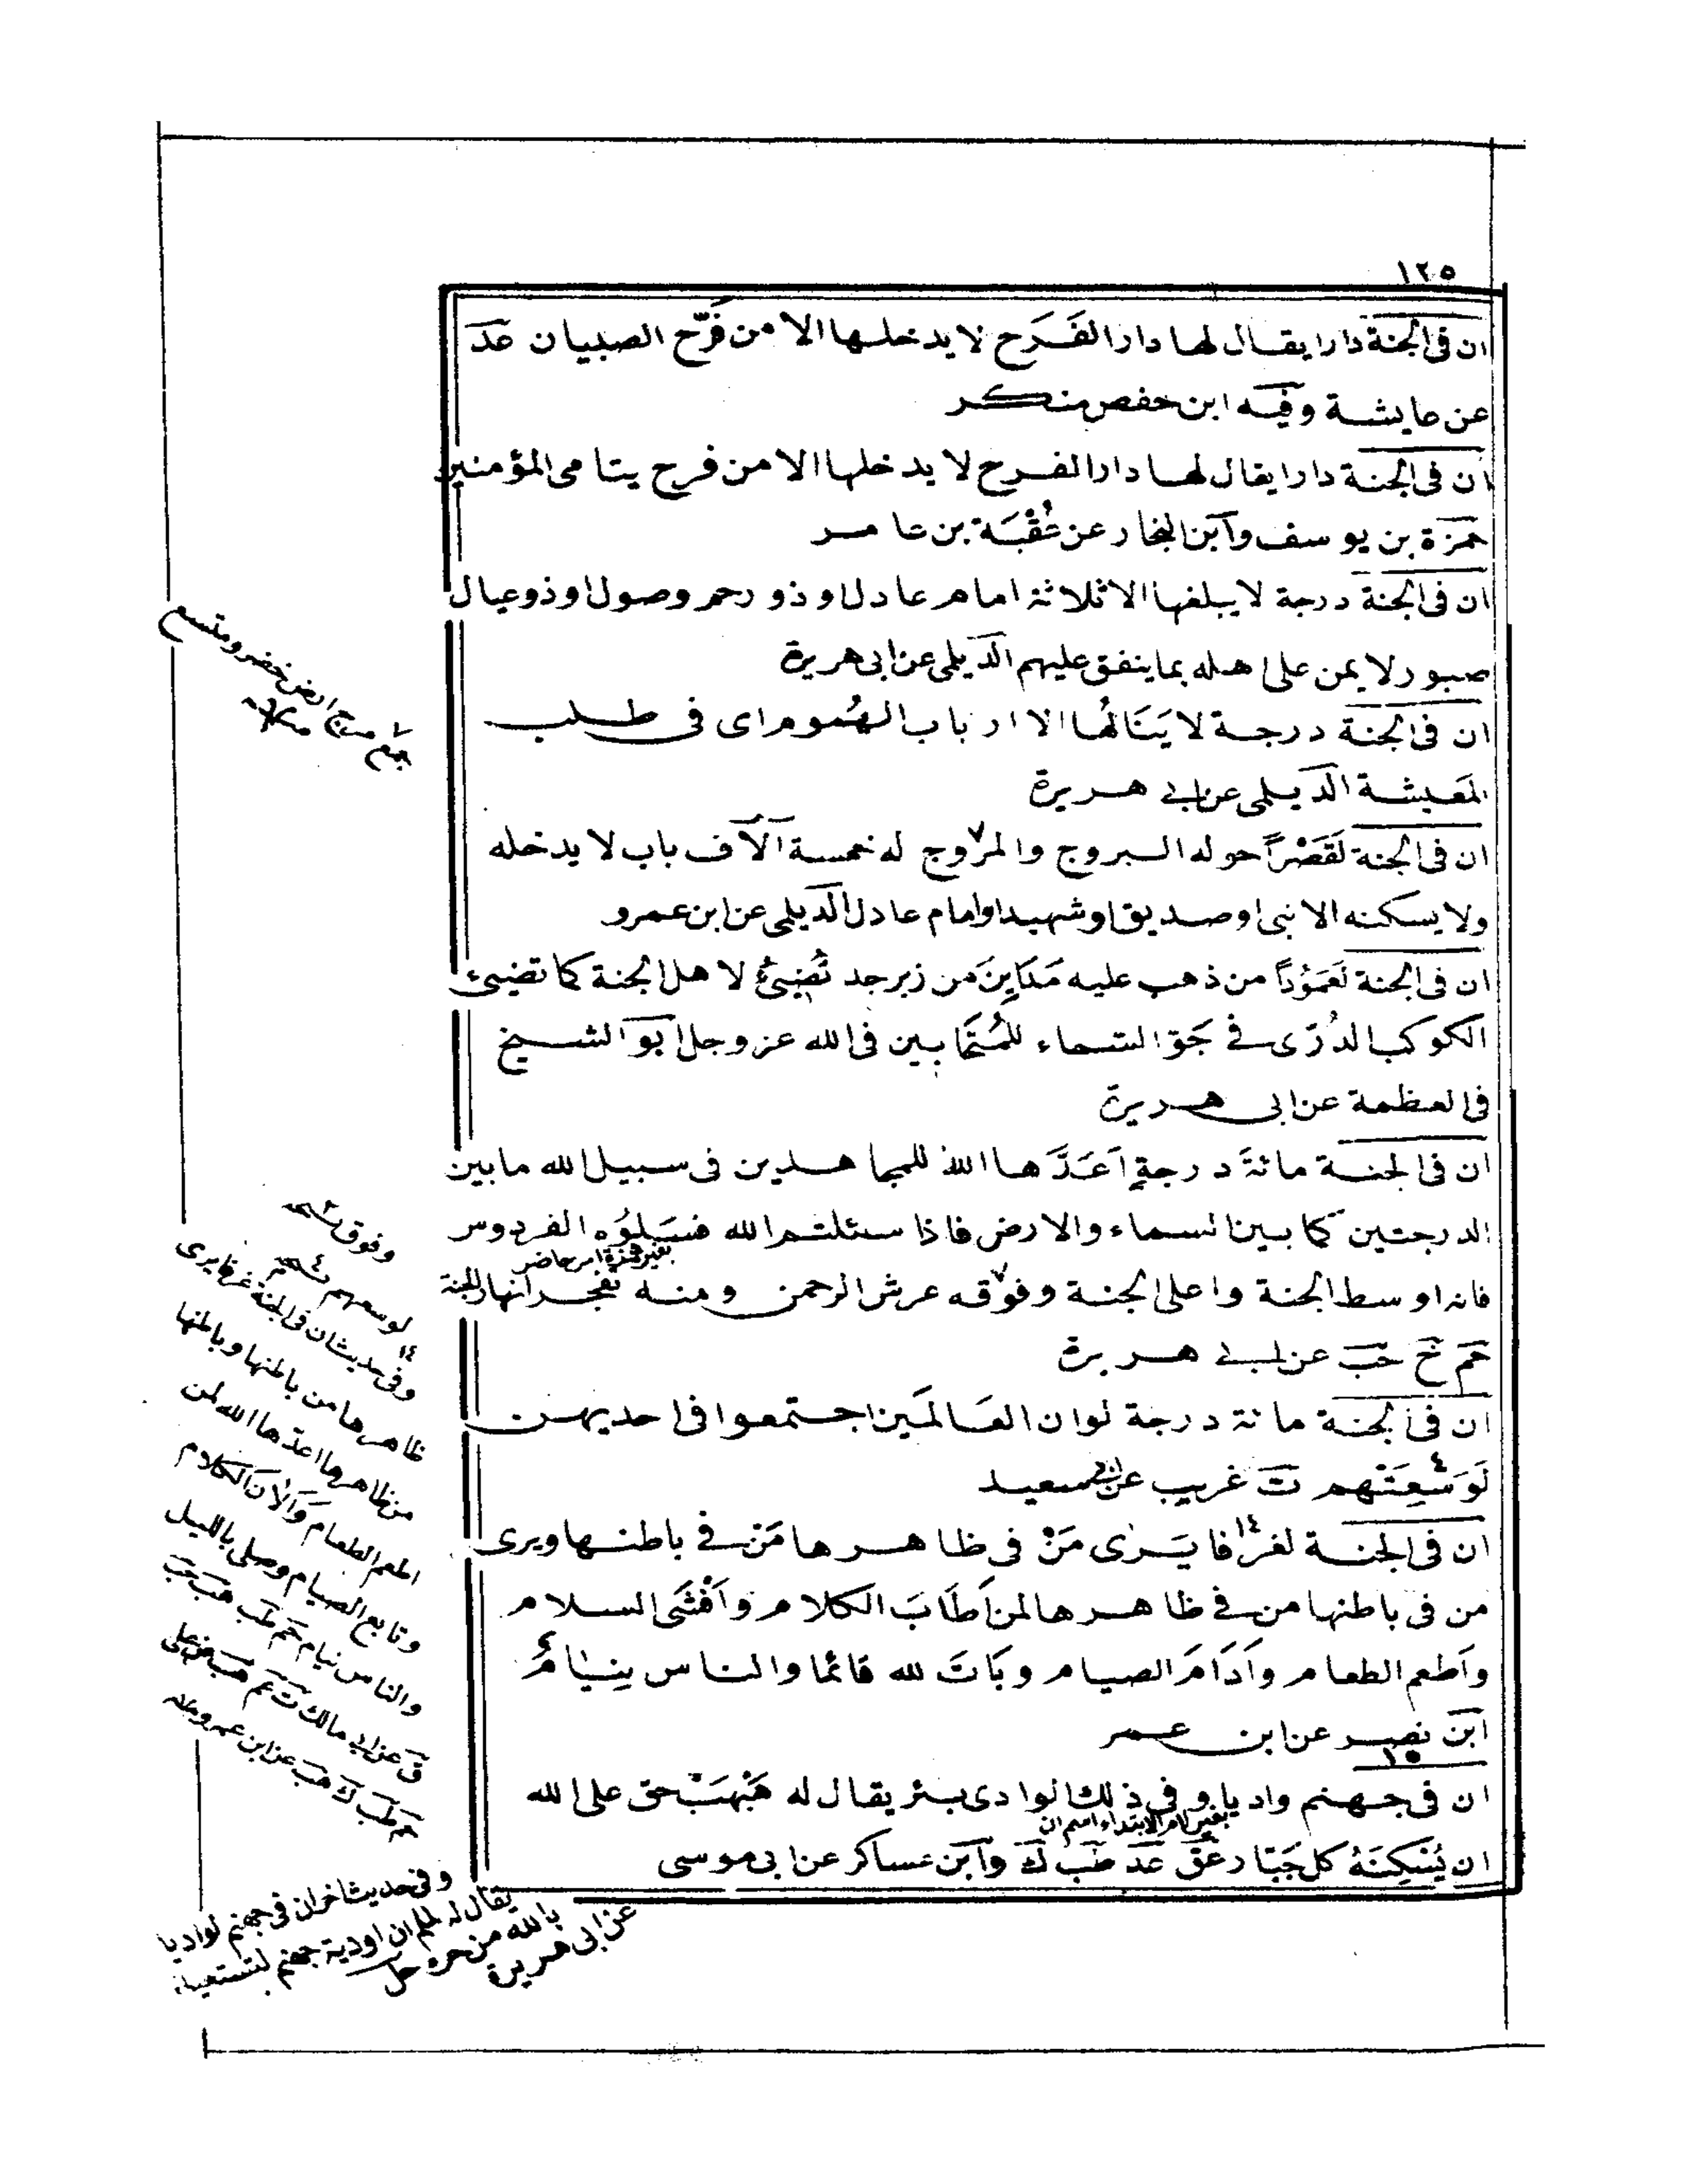 ١٢٥
ان فى الجنة دارا يقال لها دار الفَرَح لا يدخلها الا من فَرَّح الصبيان عَد
عن عايشة وفيه ابن حفص منكر
ان فى الجنة دارا يقال لها دار الفرح لا يدخلها الا من فرح يتامى المؤمنين
حمزة بن يوسف وابن النجار عن عُقْبَة بن عامر
ان فى الجنة درجة لا يبلغها الا ثلاثة امام عادل او ذو رحم وصول او ذو عيال
صبور لا يمن على اهله بما ينفق عليهم الديلمى عن ابى هريرة
ان فى الجنة درجة لا يَنَالُها الا ارباب الهُموم اى فى طلب
المَعيشة الديلمى عن ابى هريرة
ان فى الجنة لَقَصْراً حوله البروج والمروج له خمسة آلاف باب لا يدخله
ولا يسكنه الا نبى او صديق او شهيد او امام عادل الديلمى عن ابن عمرو
ان فى الجنة لَعَمُوداً من ذهب عليه مَدَاينَ من زبرجد تُضيئُ لاهل الجنة كما تضيئ
الكوكب الدُرّى فى جَوّ السماء للمُتَحابين فى الله عز وجل ابو الشيخ
فى العظمة عن ابى هريرة
ان فى الجنة مائةَ درجةٍ اَعَدَّها اللهُ للمجاهدين فى سبيل الله ما بين
الدرجتين كما بين السماء والارض فاذا سئلتم الله فسَلُوُه الفردوس
بغير همزة امر حاضر
فانه اوسط الجنة واعلى الجنة وفوقه عرش الرحمن ومنه تفجر انهار الجنة
حَم خَ حَبَ عن ابى هريرة
ان فى الجنة مائة درجة لو ان العَالمَين اجتمعوا فى احديهن
لَوَسِعَتْهم تَ غريب عن ابى سعيد
ان فى الجنة لغرفا يَرَى مَنْ فى ظاهرها مَنْ فى باطنها ويرى
من فى باطنها من فى ظاهرها لمن اَطَابَ الكلام واَفْشَى السلام
واَطعم الطعام واَدَامَ الصيام وبَاتَ لله قائما والناس نِيَامٌ
ابن نصر عن ابن عمر
ان فى جهنم واديا وفى ذلك الوادى بئر يقال له هَبْهَبْ حق على الله
بغير لام الابتداء اسم ان
ان يُسْكِنَهُ كل جَبّار عَق عَد طَب كَ وابن عساكر عن ابى موسى
جمع مرج ارض خضر ومتسع
وفوق نسخه
لوسعهم نسخه
وفى حديث ان فى الجنة غرفا يرى
ظاهرها من باطنها وباطنها
من ظاهرها اعدها الله لمن
اطعم الطعام وَاَلاَنَ الكلام
وتابع الصيام وصلى بالليل
والناس نيام حَم طَب هَب حَب
ق عن ابى مالك تَ عَم هَب عن على
حَم طَب كَ هَب عن ابن عمرو
وفى حديث اخر ان فى جهنم لواديا
يقال له لملم ان اودية جهنم لتستعيذ
بالله من حره حل
عن ابى هريرة